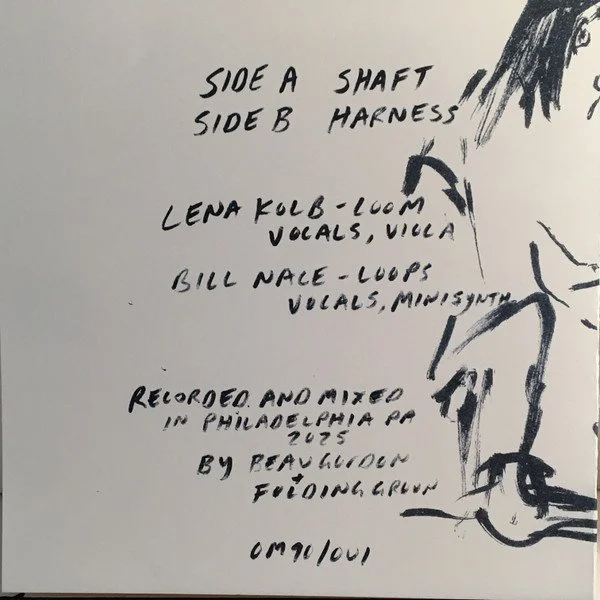 SIDE A SHAFT
SIDE B HARNESS
LENA KOLB - LOOM
VOCALS, VIOLA
BILL NACE - LOOPS
VOCALS, MINISYNTH
RECORDED AND MIXED
IN PHILADELPHIA PA
2025
BY BEAU GORDON
+
FOLDING GREEN
OM90/OU1